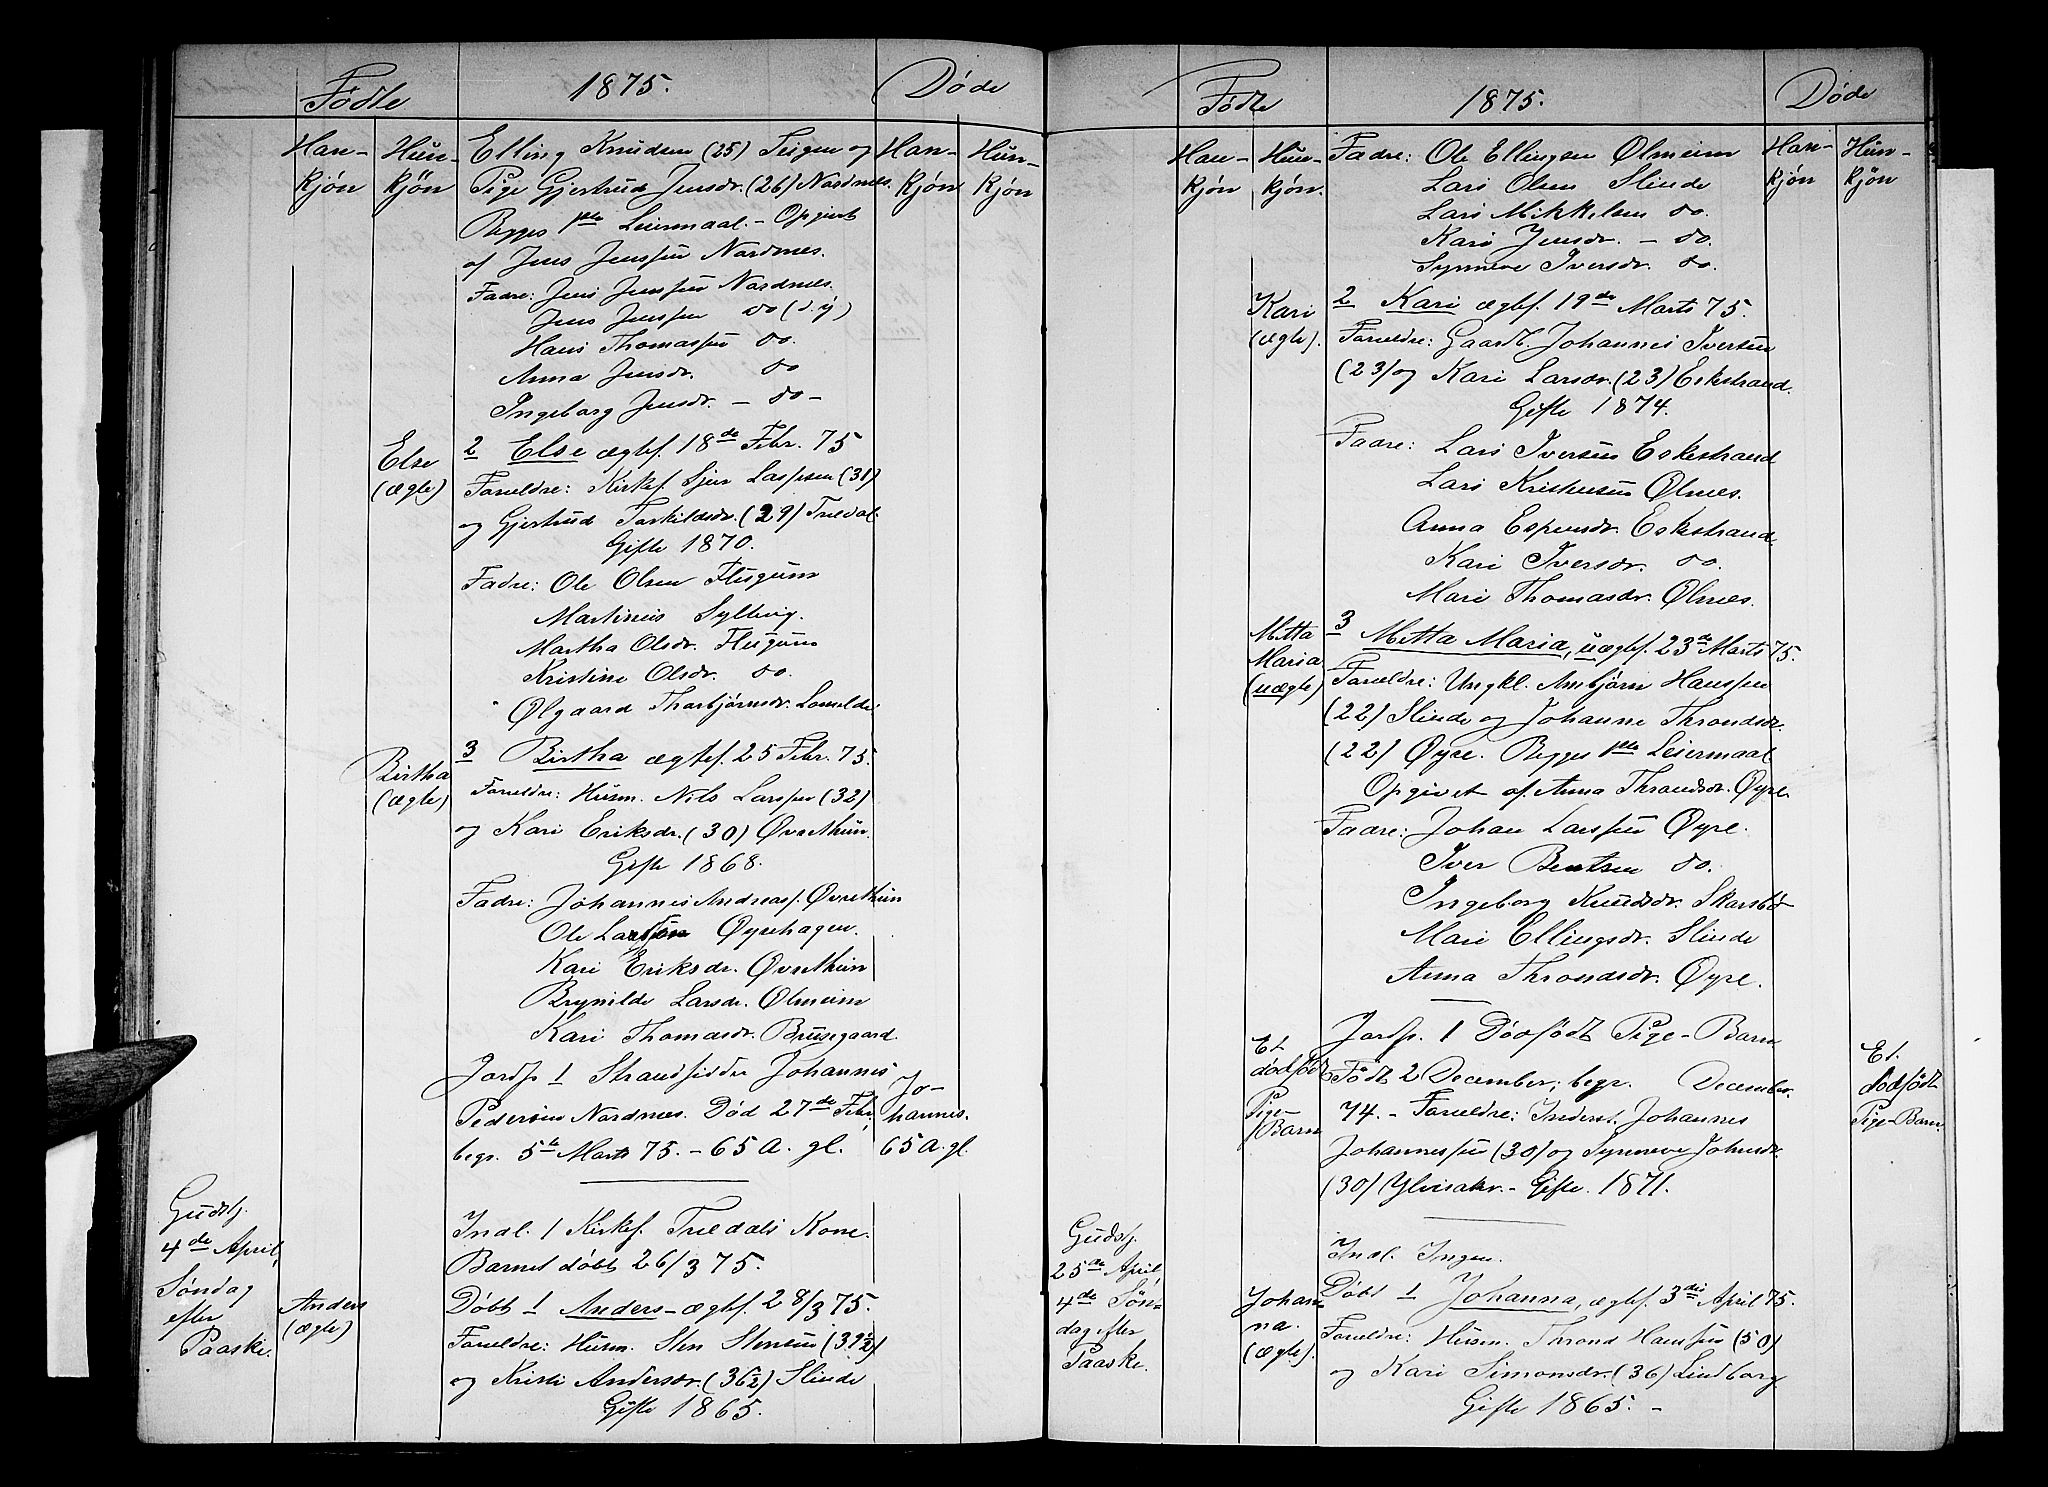 Fødte
1875.
Døde
Han-
kjøn
Hün-
kjön
Elling Knudsen (25) Teigen og
Pige Gjertrud Jensdr. (26) Nordnes.
Begges 1ste Leiermaal. - Opgivet
af Jens Jenssen Nordnes.
Fadre: Jens Jenssen Nordnes.
Jens Jenssen do (d. y)
Hans Thomassen do.
Anna Jensdr. do
Ingeborg Jensdr. - do -
Han-
kjøn
Hün-
kjön
Else
(ægte)
2 Else ægtef. 18de Febr. 75
Forældre: Kirkes. Sjur Larssen (31)
og Gjertrud Torkildsdr. (29) Trædal.
Gifte 1870.
Fadre: Ole Olsen Flugum
Martinus Sylling.
Martha Olsdr. Flugum
Kristine Olsdr. do.
Ølgaard Thorbjørnsdr. Lomelde.
Birtha
(ægte)
3 Birtha ægtef. 25 Febr. 75.
Forældre: Husm. Nils Larssen (32)
og Kari Eriksdr. (30) Øvrethun.
Gifte 1868.
Fadre: Johannes Andreass. Øvrethun
Ole Larssen Øyrehagen.
Kari Eriksdr. Øvrethun
Brynilde Larsdr. Ølmeim
Kari Thomasdr. Brusegaard.
Jordf. 1 Strandsidder Johannes
Pedersen Nordnes. Død 27de Febr.,
begr. 5te Marts 75. - 65 A. gl.
Jo-
hannes.
65 A. gl.
Gudstj.
4de April,
Søndag
efter
Paaske.
Anders
(ægte)
Indl. 1 Kirkes. Trædals Kone.
Barnet døbt 26/3 75.
Døbt 1 Anders - ægtef. 28/3 75.
Forældre: Husm. Sten Stensen (39½)
og Kristi Andersdr. (36½) Slinde
Gifte 1865.
Fødte
1875.
Døde
Han-
kjøn
Hün-
kjøn.
Fadre: Ole Ellingsen Ølmeim
Lars Olsen Slinde
Lars Mikkelsen do.
Kari Jensdr. - do.
Synneve Iversdr. do.
Han-
kjön
Hün-
kjön
Kari
(ægte).
2 Kari ægtef. 19de Marts 75.
Forældre: Gaardb. Johannes Iversen
(23) og Kari Larsdr. (23) Eskestrand.
Gifte 1874.
Fadre: Lars Iversen Eskestrand
Lars Kristensen Ølnes.
Anna Espensdr. Eskestrand.
Kari Iversdr. do.
Mari Thomasdr. Ølnes.
Mitta
Maria
(uægte)
3 Mitta Maria, uægtef. 23de Marts 75.
Forældre: Ungkl. Anbjørn Hanssen
(22) Slinde og Johanne Throndsdr.
(22) Øyre. Begges 1ste Leiermaal
Opgivet af Anna Throndsdr. Øyre.
Fadre: Johan Larssen Øyre.
Iver Bentsen do.
Ingeborg Knudsdr. Skarsbø
Mari Ellingsdr. Slinde
Anna Throndsdr. Øyre.
Et
dødfødt
Pige-
Barn
Jordf. 1 Dødfødt Pige-Barn
Født 2 December; begr. December
74. - Forældre: Inderst. Johannes
Johannessen (30) og Synneve Johnsdr.
(30) Ylvisaker. - Gifte. 1871.
Et.
dødfødt
Pige-Barn.
Gudstj.
25de April,
4de Søn-
dag efter
Paaske.
Indl. Ingen.
Johan-
na.
(ægte).
Døbt 1 Johanna, ægtef. 3die April 75.
Forældre: Husm. Thrond Hanssen (50)
og Kari Simonsdr. (36) Lindborg
Gifte 1865. -